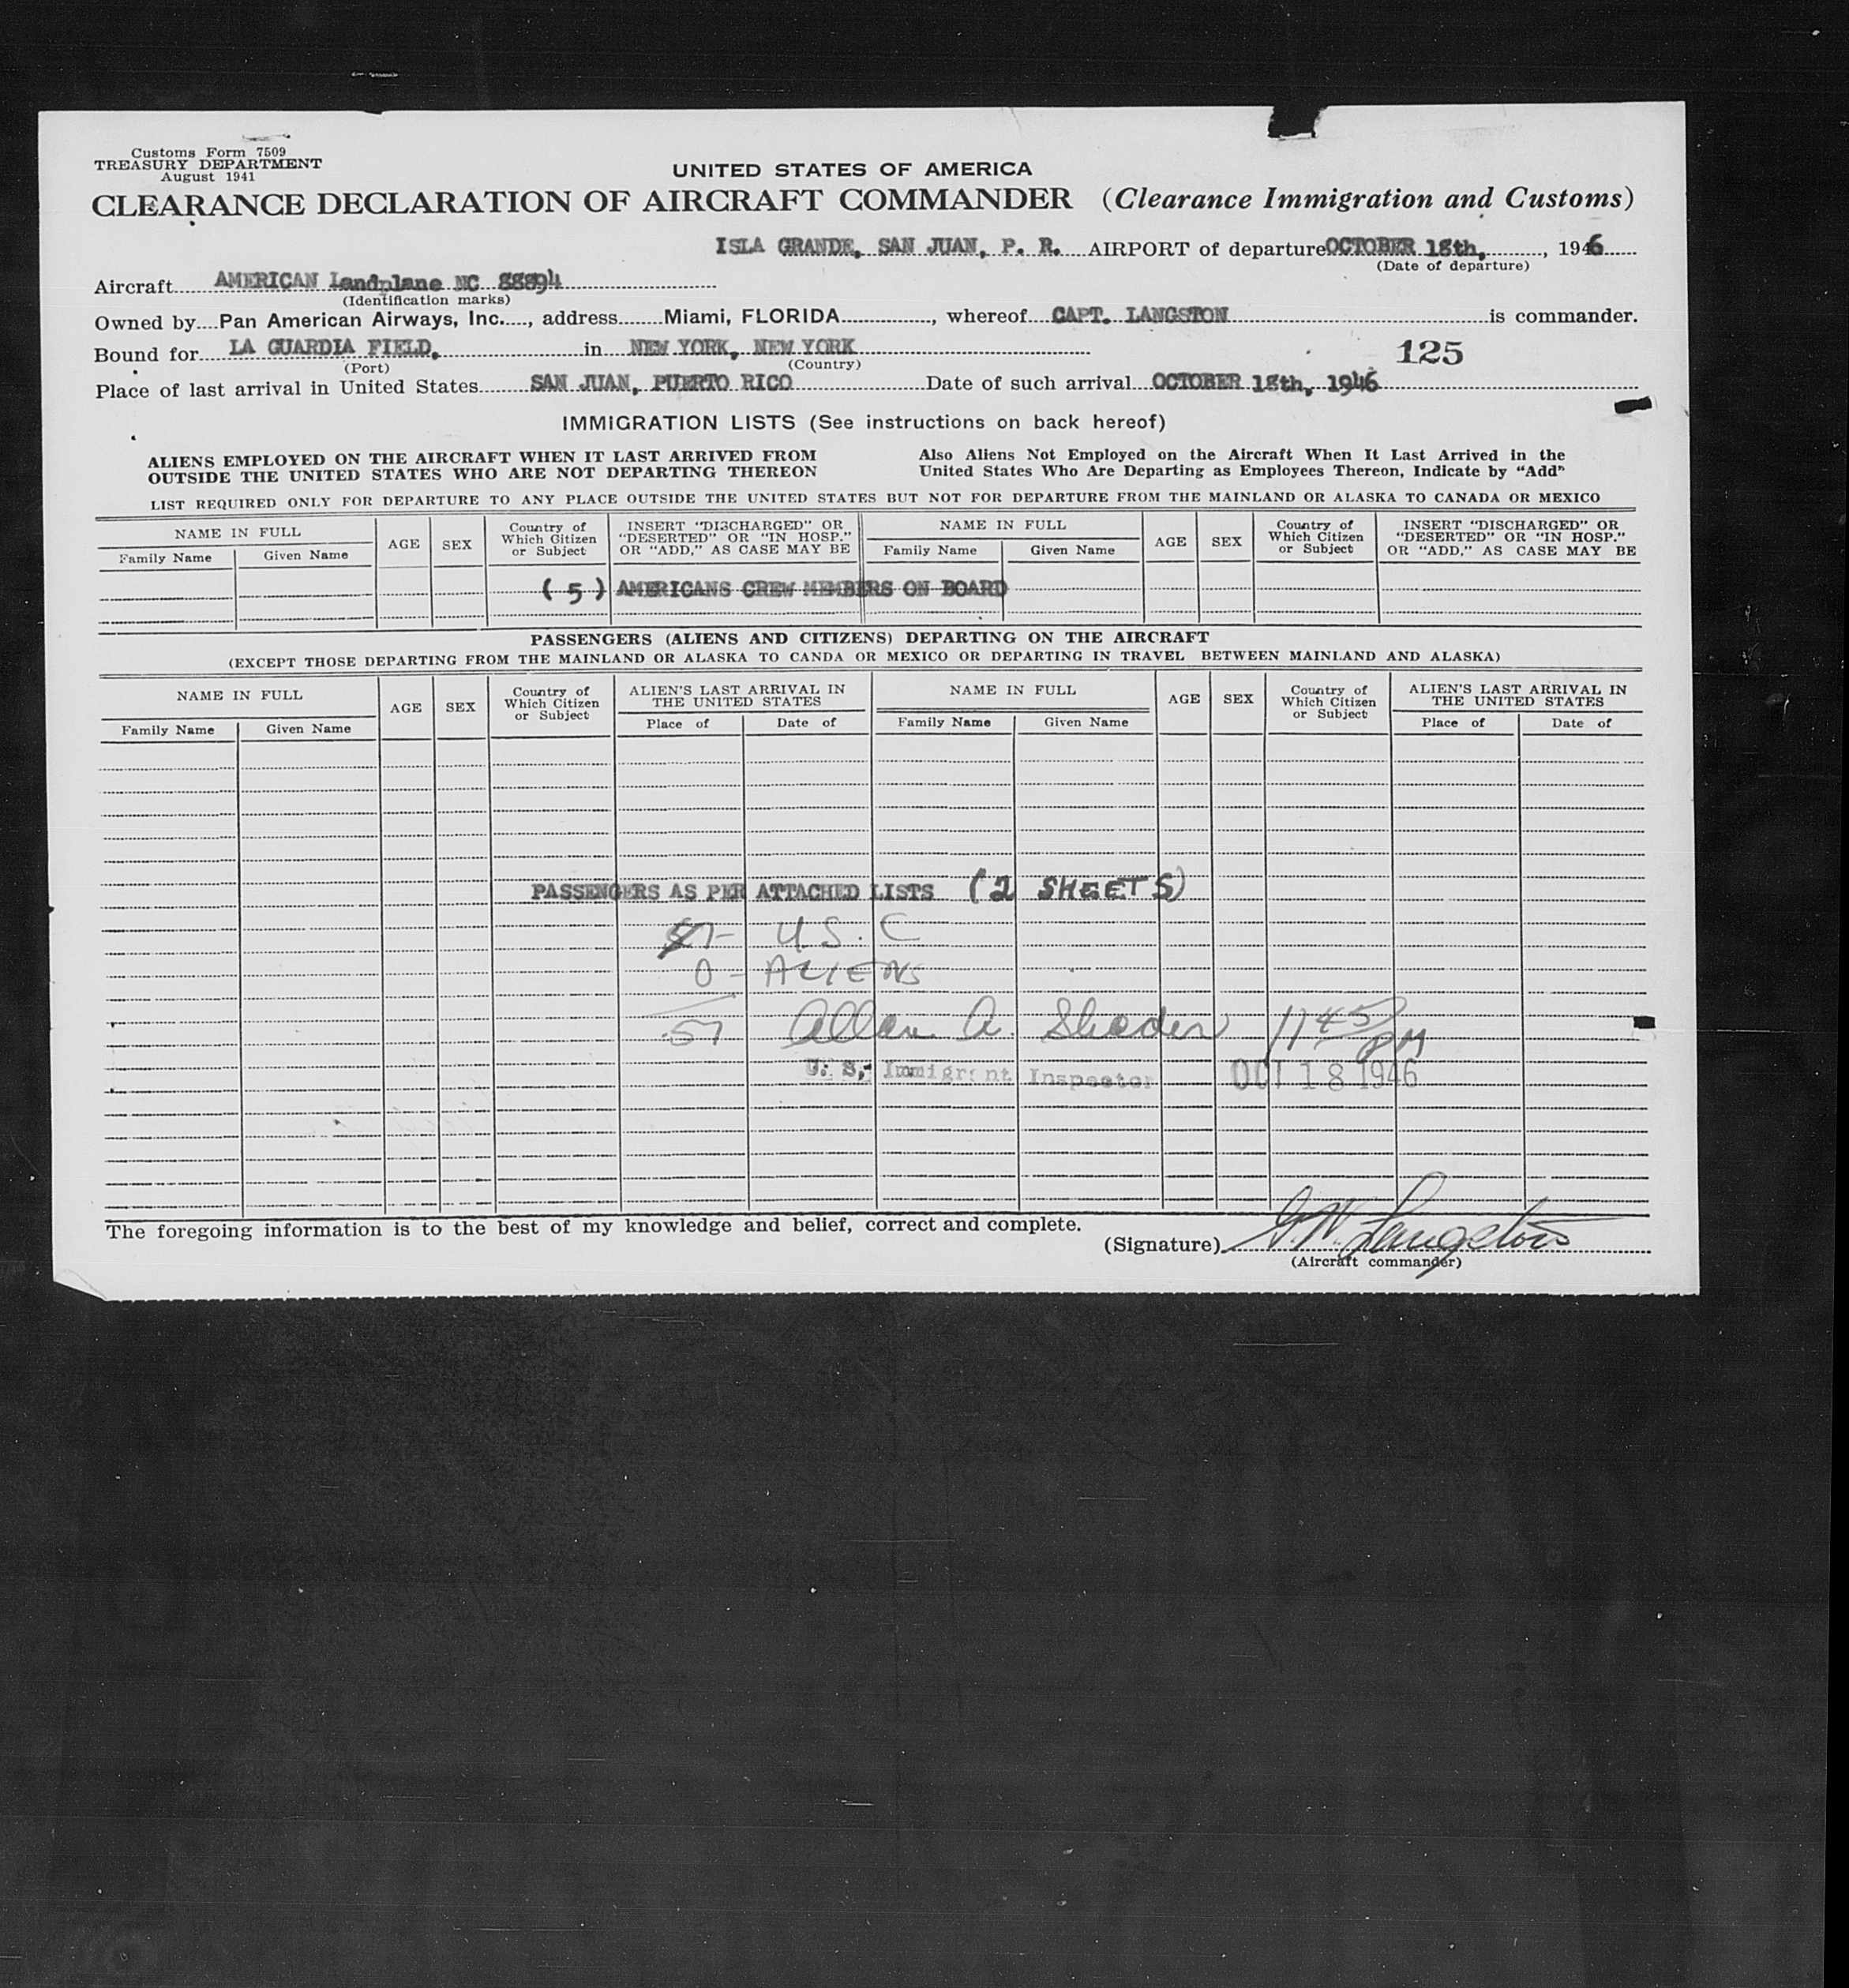 Customs Form 7509
TREASURY DEPARTMENT
August 1941
UNITED STATES OF AMERICA
CLEARANCE DECLARATION OF AIRCRAFT COMMANDER (Clearance Immigration and Customs)
ISLA GRANDE, SAN JUAN, P. R. AIRPORT of departure OCTOBER 18th, , 1946
(Date of departure)
Aircraft AMERICAN Landplane NC 88894
(Identification marks)
Owned by Pan American Airways, Inc. , address Miami, FLORIDA , whereof CAPT. LANGSTON is commander.
Bound for LA GUARDIA FIELD, in NEW YORK, NEW YORK 125
(Port) (Country)
Place of last arrival in United States SAN JUAN, PUERTO RICO Date of such arrival OCTOBER 18th, 1946
IMMIGRATION LISTS (See instructions on back hereof)
ALIENS EMPLOYED ON THE AIRCRAFT WHEN IT LAST ARRIVED FROM
OUTSIDE THE UNITED STATES WHO ARE NOT DEPARTING THEREON
Also Aliens Not Employed on the Aircraft When It Last Arrived in the
United States Who Are Departing as Employees Thereon, Indicate by "Add"
LIST REQUIRED ONLY FOR DEPARTURE TO ANY PLACE OUTSIDE THE UNITED STATES BUT NOT FOR DEPARTURE FROM THE MAINLAND OR ALASKA TO CANADA OR MEXICO
NAME IN FULL
Family Name Given Name
AGE
SEX
Country of
Which Citizen
or Subject
INSERT "DISCHARGED" OR
"DESERTED" OR "IN HOSP."
OR "ADD," AS CASE MAY BE
NAME IN FULL
Family Name Given Name
AGE
SEX
Country of
Which Citizen
or Subject
INSERT "DISCHARGED" OR
"DESERTED" OR "IN HOSP."
OR "ADD," AS CASE MAY BE
( 5 ) AMERICANS CREW MEMBERS ON BOARD
PASSENGERS (ALIENS AND CITIZENS) DEPARTING ON THE AIRCRAFT
(EXCEPT THOSE DEPARTING FROM THE MAINLAND OR ALASKA TO CANDA OR MEXICO OR DEPARTING IN TRAVEL BETWEEN MAINLAND AND ALASKA)
NAME IN FULL
Family Name Given Name
AGE
SEX
Country of
Which Citizen
or Subject
ALIEN'S LAST ARRIVAL IN
THE UNITED STATES
Place of Date of
NAME IN FULL
Family Name Given Name
AGE
SEX
Country of
Which Citizen
or Subject
ALIEN'S LAST ARRIVAL IN
THE UNITED STATES
Place of Date of
PASSENGERS AS PER ATTACHED LISTS (2 SHEETS)
57- U.S.C
0 - ALIENS
57 Allan A. 1145 PM
U. S. Immigrant Inspector OCT 18 1946
The foregoing information is to the best of my knowledge and belief, correct and complete.
(Signature) Langston
(Aircraft commander)